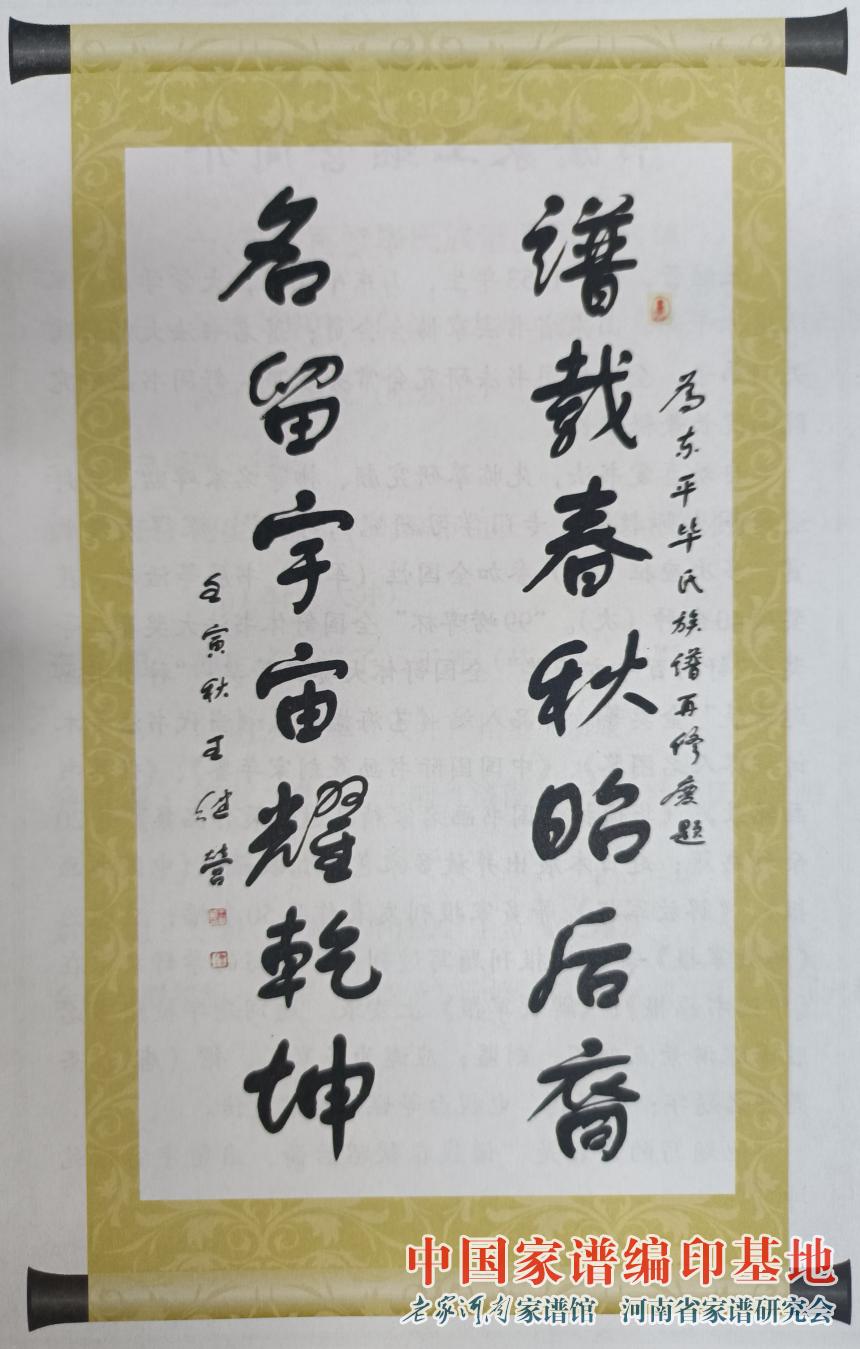 譜載春秋昭后裔
为东平毕氏族谱再修处题
名留宇宙耀乾坤
壬寅秋王建营
中国家谱编印基地
老家河南家谱馆 河南省家谱研究会